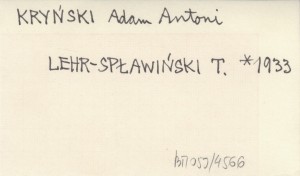 KRYŃSKI Adam Antoni
LEHR-SPŁAWIŃSKI T. *1933